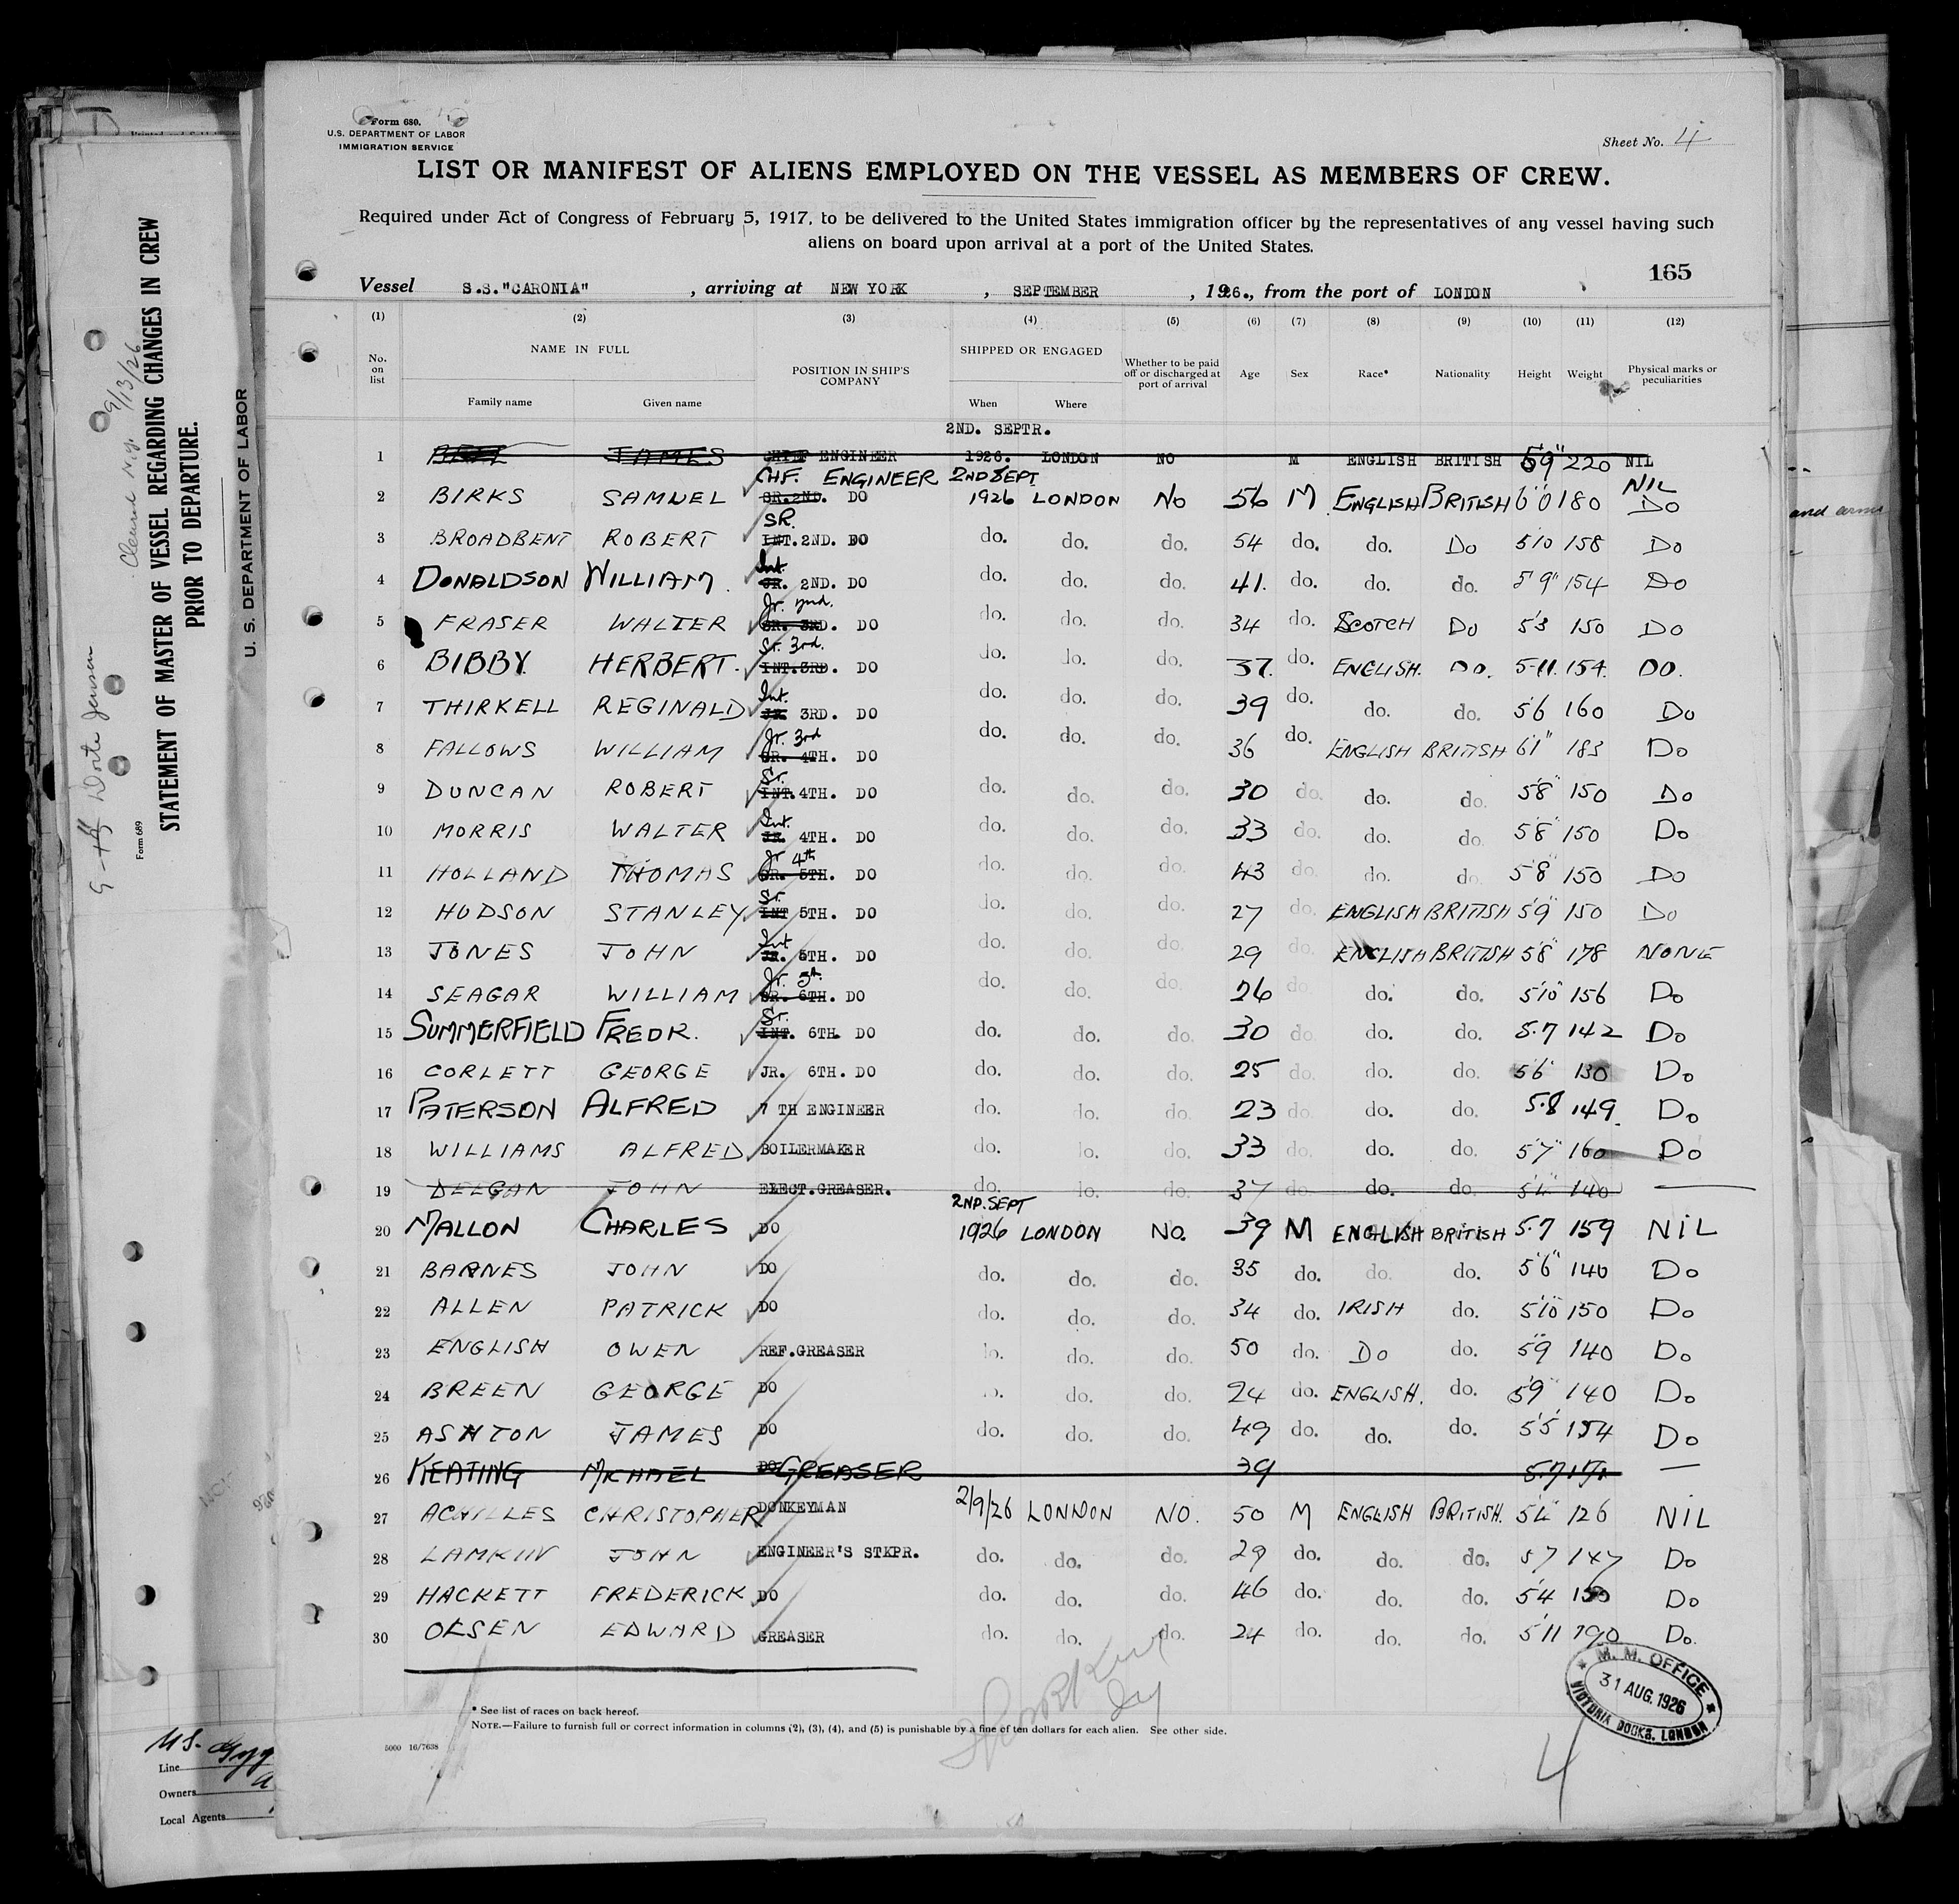 Form 680.
U.S. DEPARTMENT OF LABOR
IMMIGRATION SERVICE
Sheet No. 4
LIST OR MANIFEST OF ALIENS EMPLOYED ON THE VESSEL AS MEMBERS OF CREW.
Required under Act of Congress of February 5, 1917, to be delivered to the United States immigration officer by the representatives of any vessel having such
aliens on board upon arrival at a port of the United States.
165
Vessel S.S."CARONIA" , arriving at NEW YORK , SEPTEMBER , 1926., from the port of LONDON
(1) (2) (3) (4) (5) (6) (7) (8) (9) (10) (11) (12)
No. on list NAME IN FULL Family name Given name POSITION IN SHIP'S COMPANY SHIPPED OR ENGAGED When Where Whether to be paid off or discharged at port of arrival Age Sex Race* Nationality Height Weight Physical marks or peculiarities
2ND. SEPTR.
1 JAMES CHIEF ENGINEER 1926. LONDON NO M ENGLISH BRITISH 5'9" 220 NIL
CHF. ENGINEER 2ND SEPT NIL
2 BIRKS SAMUEL SR. 2ND. DO 1926 LONDON No 56 M ENGLISH BRITISH 6'0 180 Do
SR.
3 BROADBENT ROBERT INT. 2ND. DO do. do. do. 54 do. do. Do 5'10 158 Do
Int.
4 DONALDSON WILLIAM. JR. 2ND. DO do. do. do. 41. do. do. do. 5'9" 154 Do
Jr. 2nd.
5 FRASER WALTER SR. 3RD. DO do. do. do. 34 do. SCOTCH Do 5'3 150 Do
Sr. 3rd.
6 BIBBY. HERBERT. INT. 3RD. DO do. do. do. 37. do. ENGLISH. DO. 5-11. 154. DO.
Int.
7 THIRKELL REGINALD JR. 3RD. DO do. do. do. 39 do. do. do. 5'6 160 Do
Jr. 3rd
8 FALLOWS WILLIAM SR. 4TH. DO do. do. do. 36 do. ENGLISH BRITISH 6'1" 183 Do
Sr.
9 DUNCAN ROBERT INT. 4TH. DO do. do. do. 30 do. do. do. 5'8" 150 Do
Int.
10 MORRIS WALTER JR. 4TH. DO do. do. do. 33 do. do. do 5'8" 150 Do
Jr 4th
11 HOLLAND THOMAS SR. 5TH. DO do. do. do. 43 do. do. do. 5'8" 150 Do
Sr.
12 HUDSON STANLEY. INT 5TH. DO do. do. do. 27 do. ENGLISH BRITISH 5'9" 150 Do
Int
13 JONES JOHN JR. 5TH. DO do. do. do. 29 do. ENGLISH BRITISH 5'8" 178 NONE
Jr. 5th
14 SEAGAR WILLIAM SR. 6TH. DO do. do. do. 26 do. do. do. 5'10" 156 Do
Sr.
15 SUMMERFIELD FREDR. INT. 6TH. DO do. do. do. 30 do. do. do. 5.7 142 Do
16 CORLETT GEORGE JR. 6TH. DO do. do. do. 25 do. do. do. 5'6" 130 Do
17 PATERSON ALFRED 7 TH ENGINEER do. do. do. 23 do. do. do. 5.8 149. Do
18 WILLIAMS ALFRED BOILERMAKER do. do. do. 33 do. do. do. 5'7" 160 Do
19 DEEGAN JOHN ELECT.GREASER. do. do. do. 37 do. do. do. 5'4" 140
2ND. SEPT
20 MALLON CHARLES DO 1926 LONDON No. 39 M ENGLISH BRITISH 5.7 159 NIL
21 BARNES JOHN DO do. do. do. 35 do. do. do. 5'6" 140 Do
22 ALLEN PATRICK DO do. do. do. 34 do. IRISH do. 5'10" 150 Do
23 ENGLISH OWEN REF.GREASER do. do. do. 50 do. Do do. 5'9 140 Do
24 BREEN GEORGE DO do. do. do. 24 do. ENGLISH. do. 5'9" 140 Do
25 ASHTON JAMES DO do. do. do. 49 do. do. do. 5'5 154 Do
26 KEATING MICHAEL DO GREASER 39 5.7 171.
27 ACHILLES CHRISTOPHER DONKEYMAN 2/9/26 LONDON NO. 50 M ENGLISH BRITISH. 5'4" 126 NIL
28 LAMKIN JOHN ENGINEER'S STKPR. do. do. do. 29 do. do. do. 5'7 147 Do
29 HACKETT FREDERICK DO do. do. do. 46 do. do. do. 5'4 150 Do
30 OLSEN EDWARD GREASER do. do. do. 24 do. do. do. 5'11 190 Do.
* See list of races on back hereof.
NOTE.—Failure to furnish full or correct information in columns (2), (3), (4), and (5) is punishable by a fine of ten dollars for each alien. See other side.
5000 16/7638
M. M. OFFICE
31 AUG. 1926
VICTORIA DOCKS, LONDON
4
U. S. DEPARTMENT OF LABOR
STATEMENT OF MASTER OF VESSEL REGARDING CHANGES IN CREW
PRIOR TO DEPARTURE.
Form 689
9/13/26
Line
Owners
Local Agents
and arms